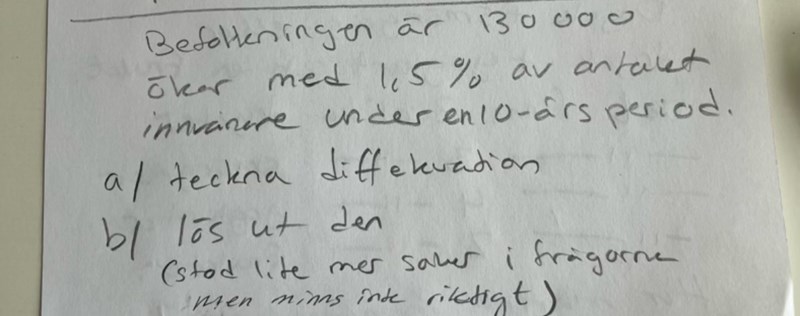 Befolkningen är 130 000
ökar med 1,5% av antalet
innvånare under en 10-års period.
a/ teckna diffekvation
b/ lös ut den
(stod lite mer saker i frågorna
men minns inte riktigt)